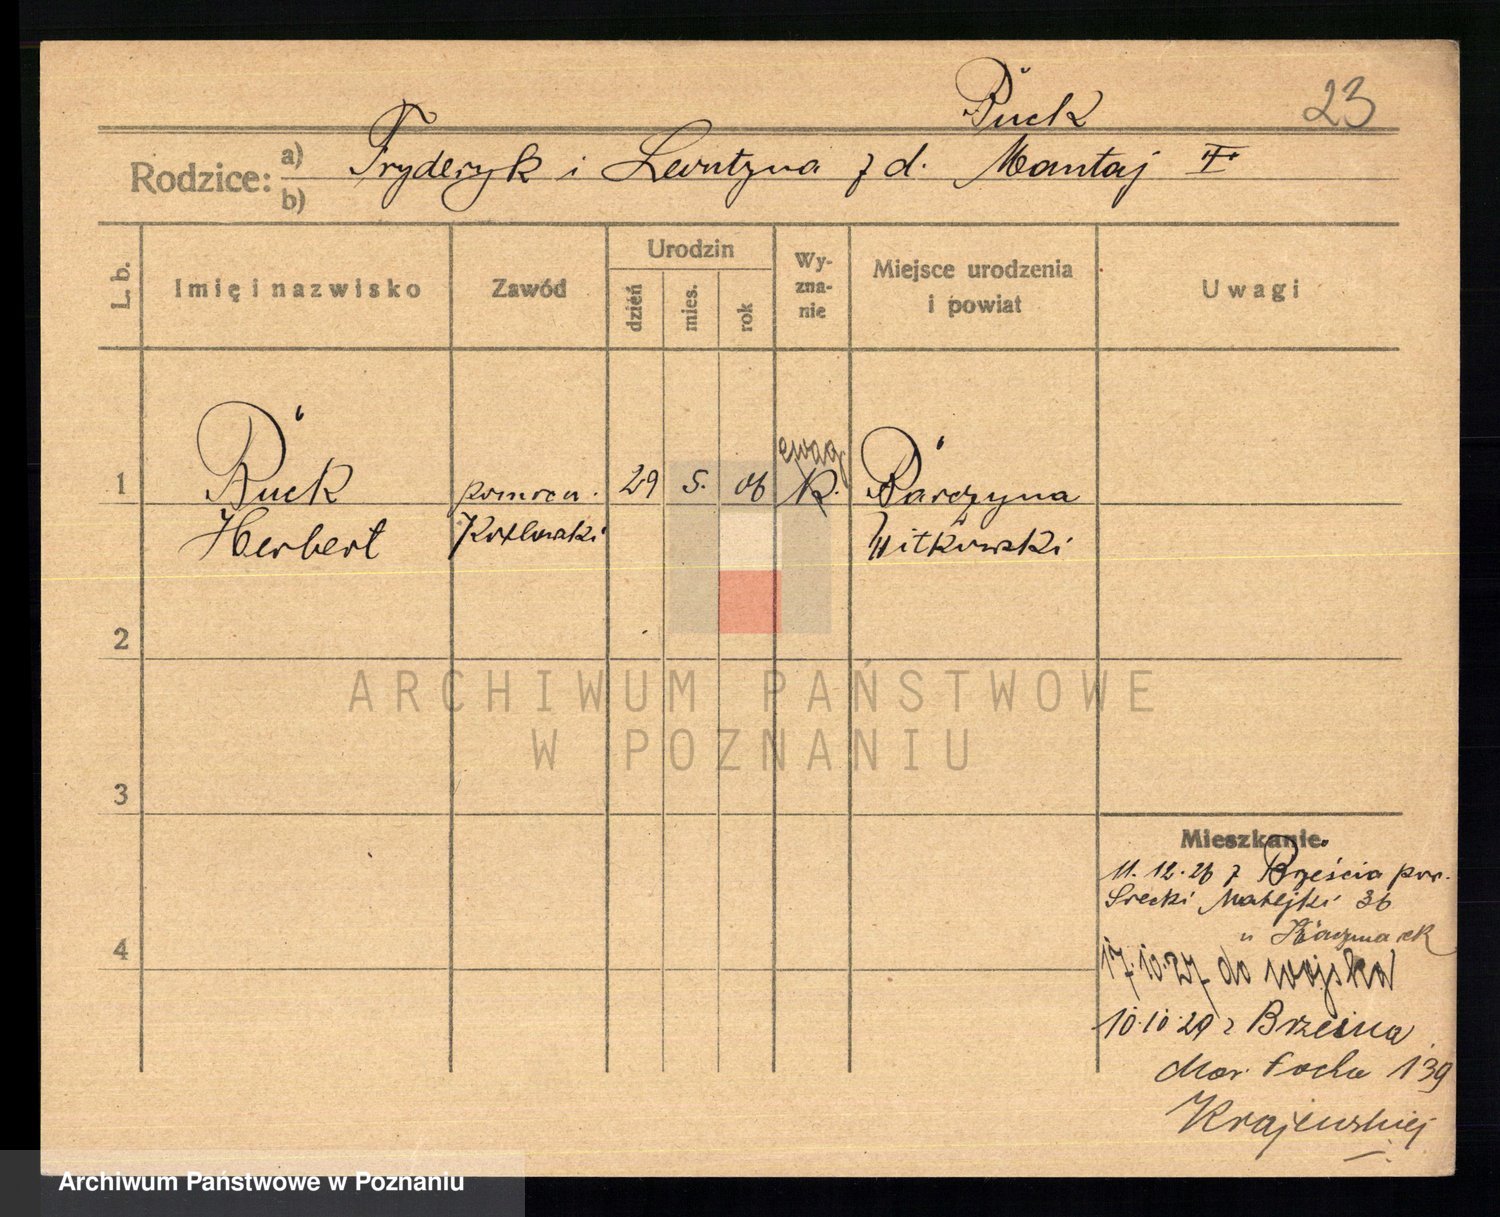 Bück
23
Rodzice: a) Fryderyk i Leontyna z d. Mantaj
b)
L. b.
Imię i nazwisko
Zawód
Urodzin
dzień
mies.
rok
Wy-
zna-
nie
Miejsce urodzenia
i powiat
Uwagi
ewag
1 Bück pomocn. 29 5. 06 k. Parczyna
Herbert Kotlowski Witkowski
2
ARCHIWUM PAŃSTWOWE
W POZNANIU
3
Mieszkanie.
11.12.26 z Brześcia pow.
Srecki Matejki 36
u Kaczmarek
4
17.10.27 do wojska
10.10.29 z Brzeźna
Mar. Focha 139
Krajewskiej
Archiwum Państwowe w Poznaniu